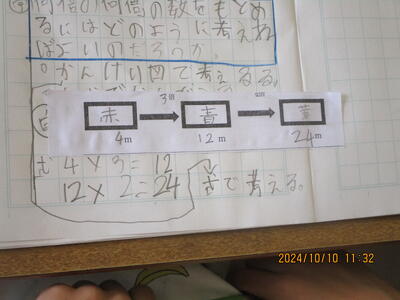 何倍の何倍の数をもとめ
るにはどのように考えれ
ばよいのだろうか。
かんけい図で考える。
3倍 2倍
赤 青 黄
4m 12m 24m
4×3=12
12×2=24 式で考える。
2024/10/10 11:32